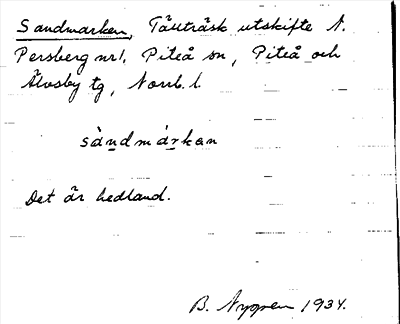 Sandmarken, Tällträsk utskifte N.
Persberg nr 1, Piteå sn, Piteå och
Älvsby tg, Norrb. l.
sàndmárkan
Det är hedland.
B. Nygren 1934.